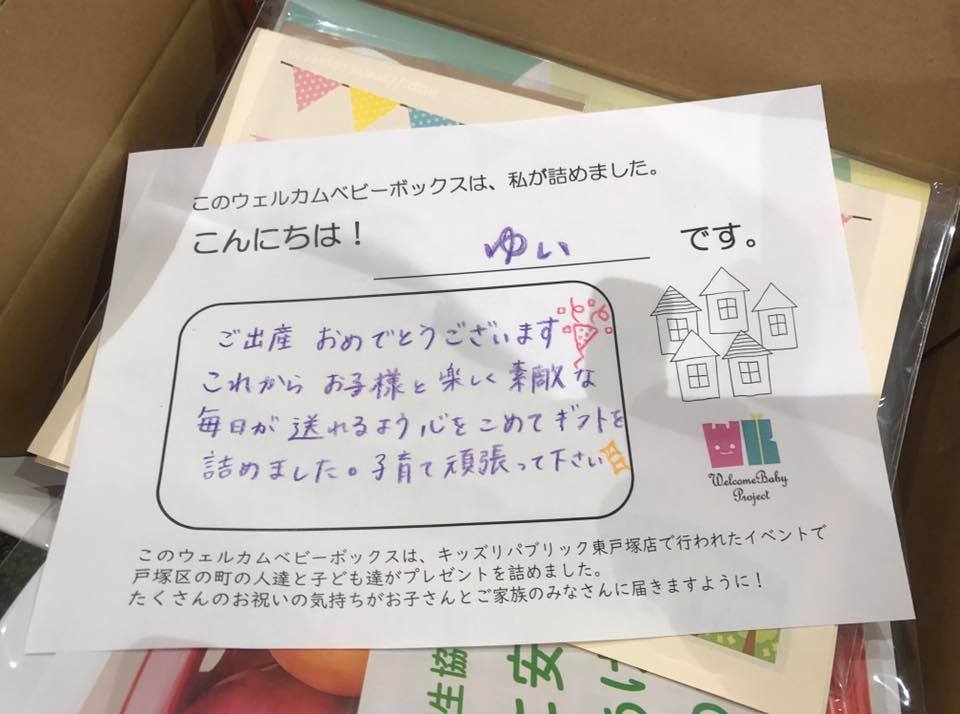 このウェルカムベビーボックスは、私が詰めました。
こんにちは! ゆい です。
ご出産 おめでとうございます
これから お子様と 楽しく 素敵な
毎日が 送れるよう 心を こめて ギフトを
詰めました。子育て 頑張って 下さい
WelcomeBaby
Project
このウェルカムベビーボックスは、キッズリパブリック東戸塚店で行われたイベントで
戸塚区の町の人達と子ども達がプレゼントを詰めました。
たくさんのお祝いの気持ちがお子さんとご家族のみなさんに届きますように!
生協